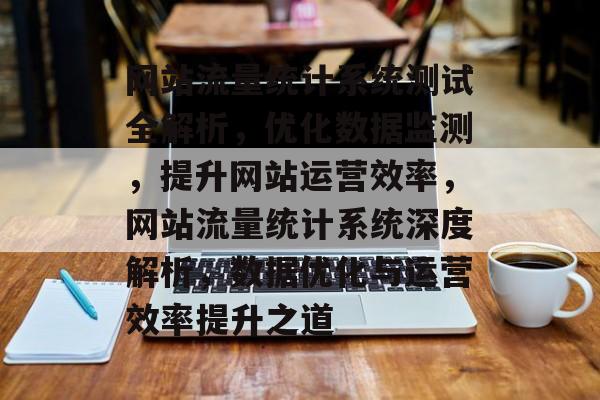 网站流量统计系统测试
全解析，优化数据监测
，提升网站运营效率，
网站流量统计系统深度
解析，数据优化与运营
效率提升之道